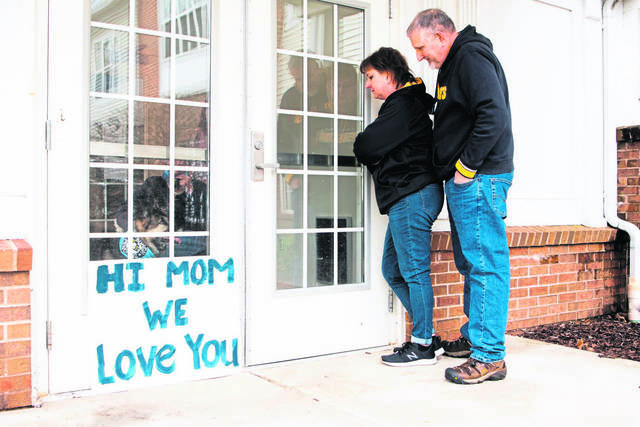 HI MOM
WE
Love You